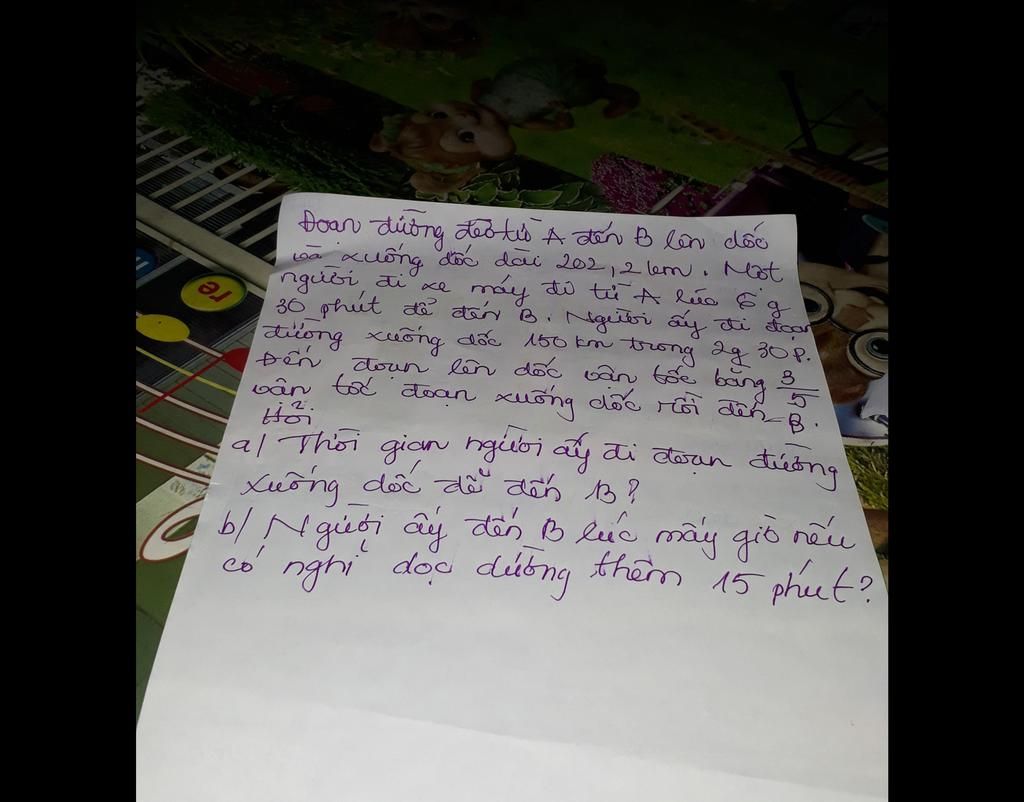 Đoạn đường đèo từ A đến B lên dốc
và xuống dốc dài 202,2 km. Một
người đi xe máy đi từ A lúc 6 g
30 phút để đến B. Người ấy đi đoạn
đường xuống dốc 150 km trong 2g 30 p.
Đến đoạn lên dốc vận tốc bằng 3/5
vận tốc đoạn xuống dốc rồi đến B.
Hỏi
a/ Thời gian người ấy đi đoạn đường
xuống dốc để đến B?
b/ Người ấy đến B lúc mấy giờ nếu
có nghỉ dọc đường thêm 15 phút?
re